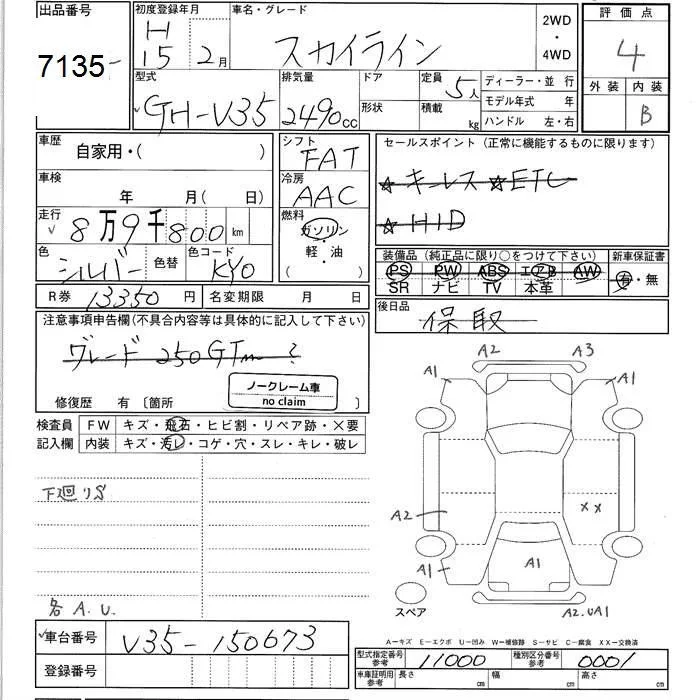 出品番号
7135
初度登録年月
H
15 2月
車名・グレード
スカイライン
2WD
・
4WD
評価点
4
外装 内装
B
型式
GH-V35
排気量
2490cc
ドア
形状
定員
5人
積載
kg
ディーラー・並 行
モデル年式 年
ハンドル 左・右
車歴
自家用・( )
車検
年 月( 日)
走行
8万9千800 km
色
シルバー
色替
色コード
KY0
シフト
FAT
冷房
AAC
燃料
ガソリン
・
軽・油
( )
セールスポイント(正常に機能するものに限ります)
☆キーレス ☆ETC
☆HID
装備品(純正品に限り○をつけて下さい)
PS PW ABS エアB AW
SR ナビ TV 本革
新車保証書
有・無
R券 13350 円
名変期限 月 日
後日品
保取
注意事項申告欄(不具合内容等は具体的に記入して下さい)
グレード 250GTm ?
ノークレーム車
no claim
修復歴 有〔箇所 〕
検査員
記入欄
FW キズ・飛石・ヒビ割・リペア跡・×要
内装 キズ・汚レ・コゲ・穴・スレ・キレ・破レ
下廻りS
各A.U.
A2 A3
A1 A1
A2
XX
A1
A1
A2.UA1
スペア
A－キズ E－エクボ U－凹み W－補修跡 S－サビ C－腐食 XX－交換済
車台番号
V35-150673
登録番号
型式指定番号
参考
11000
種別区分番号
参考
0001
車庫証明用
参考
長さ cm
幅 cm
高さ cm